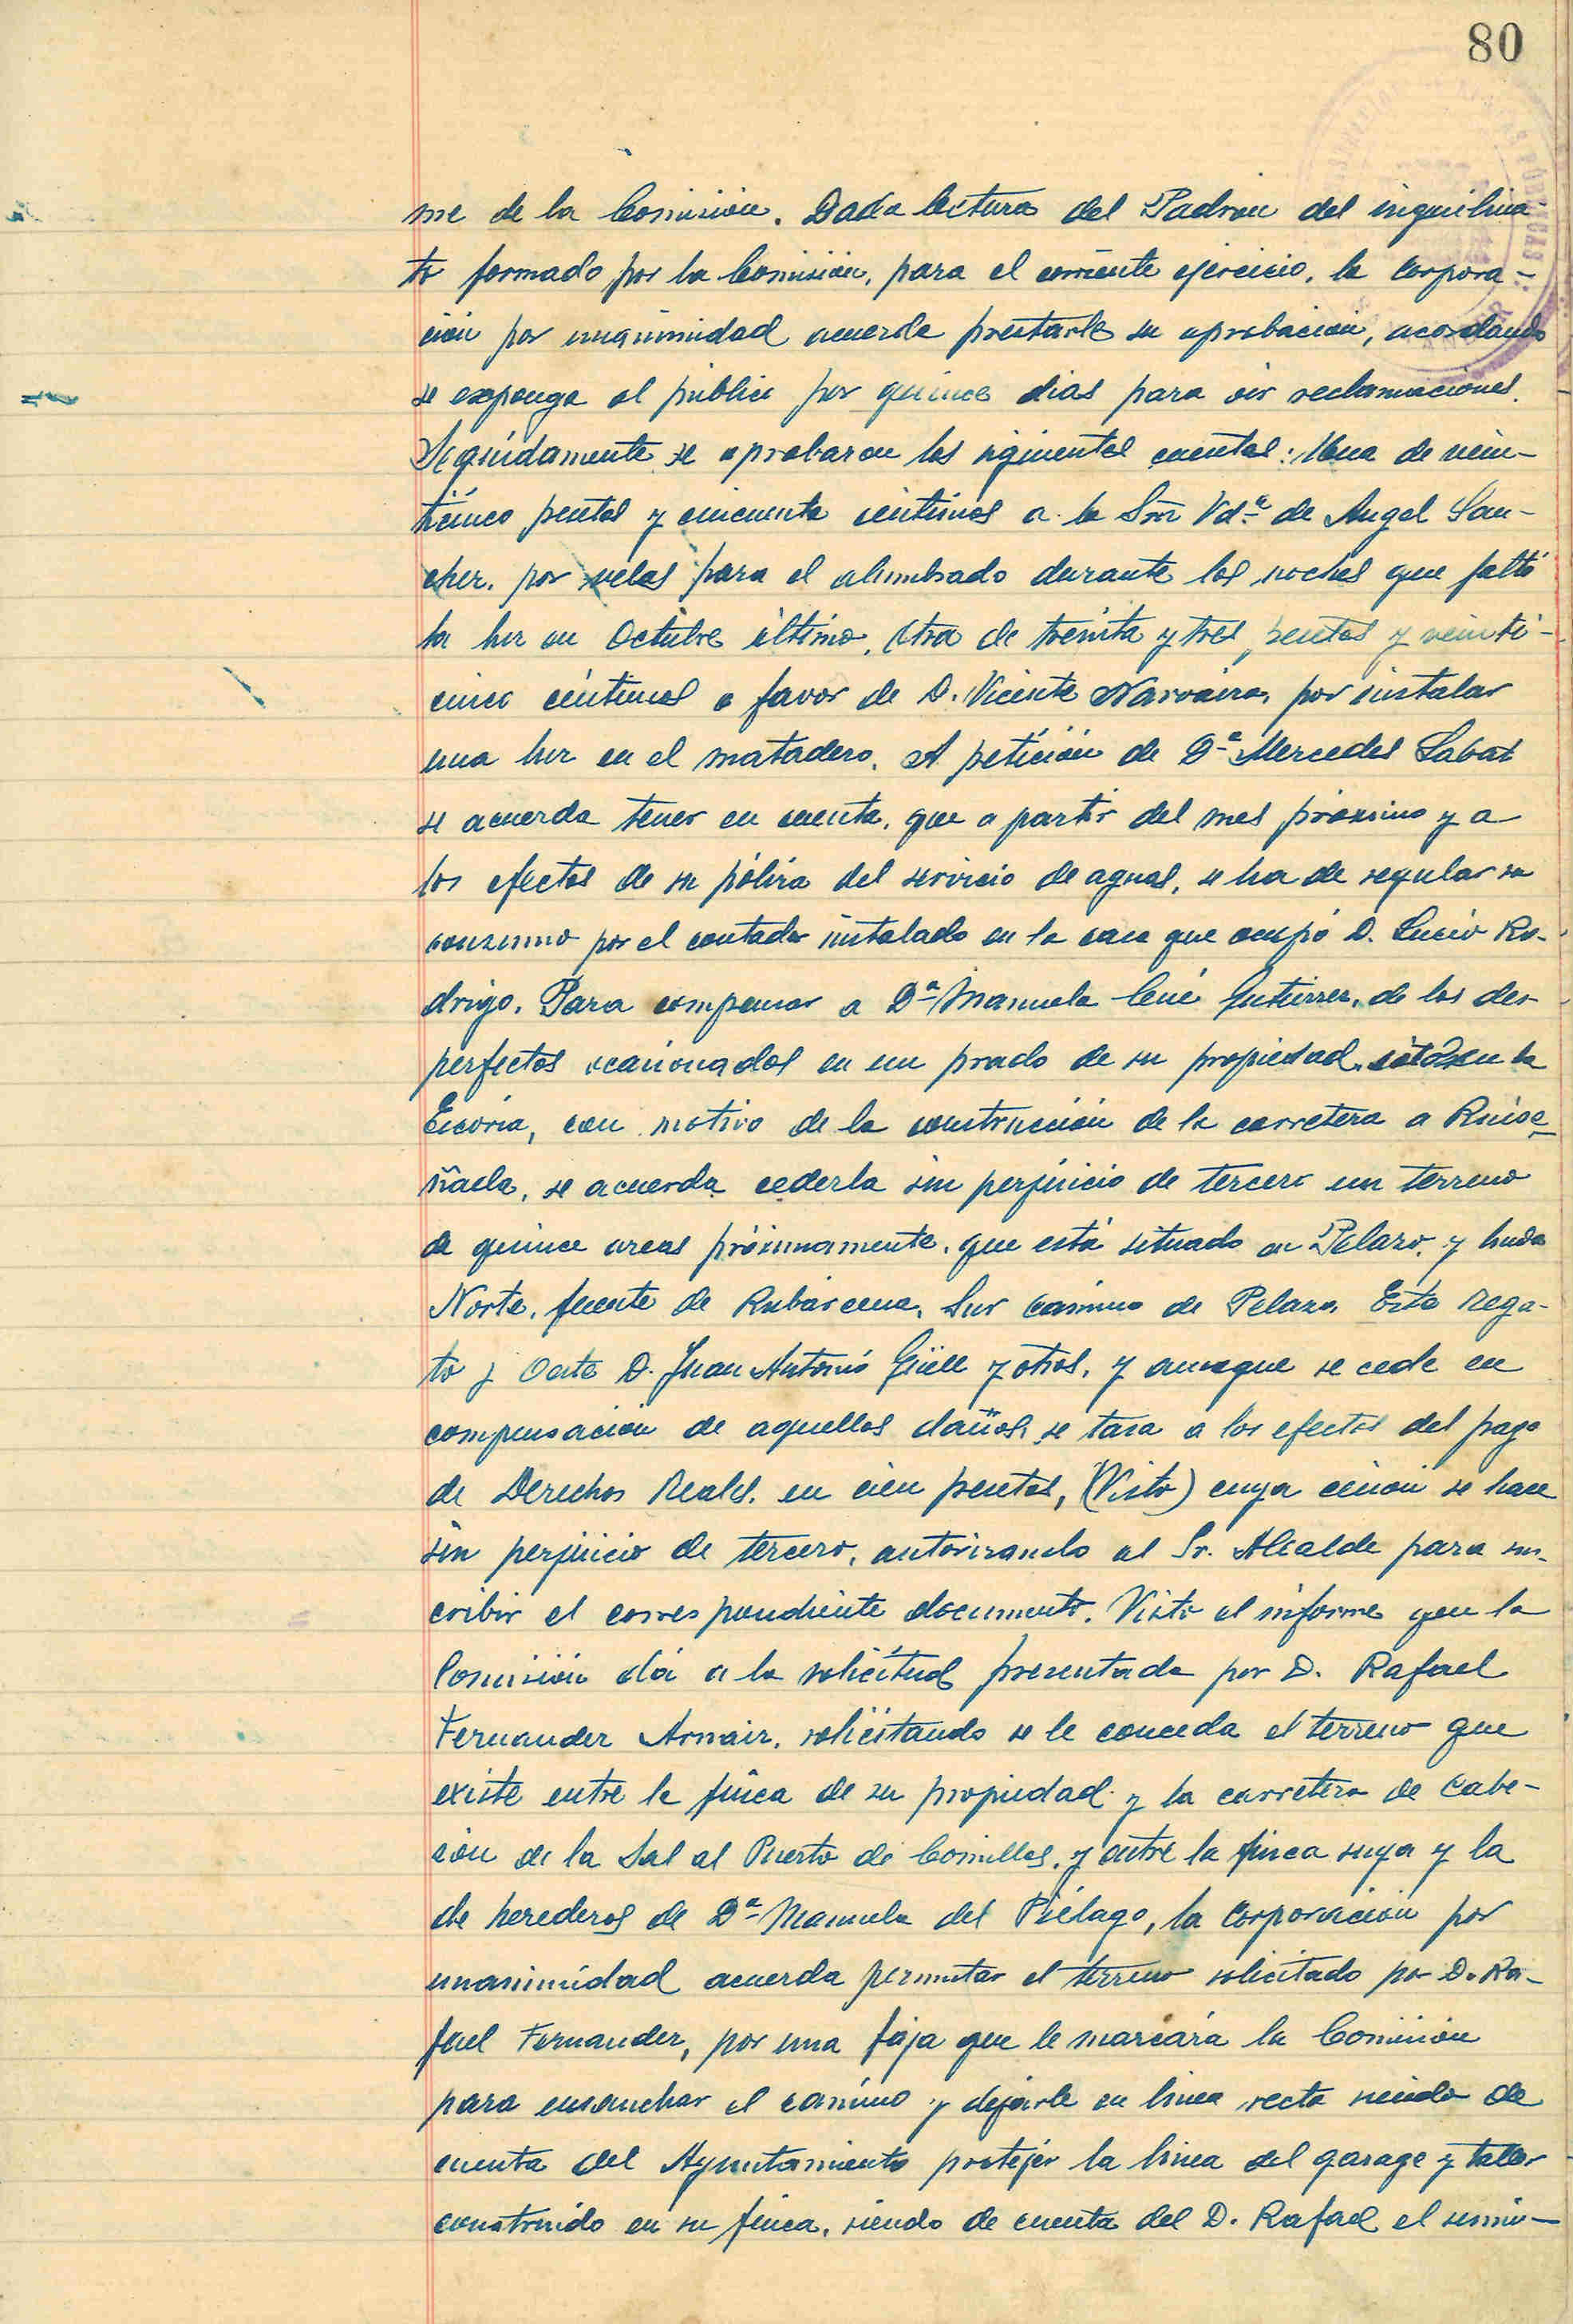 80
me de la Comisión. Dada lectura del Padrón del inquilina-
to formado por la Comisión, para el corriente ejercicio, la Corpora-
ción por unanimidad acuerda prestarle su aprobación, acordando
se exponga al público por quince dias para oir reclamaciones.
Seguidamente se aprobaron las siguientes cuentas: Una de vein-
ticinco pesetas y cincuenta centimos a la Sra Vdª de Angel San-
chez, por velas para el alumbrado durante las noches que faltó
la luz en Octubre último. Otra de treinta y tres pesetas y veinti-
cinco céntimos a favor de D. Vicente Narvaiza, por instalar
una luz en el matadero. A petición de Dª Mercedes Sabat
se acuerda tener en cuenta, que a partir del mes próximo y a
los efectos de su póliza del servicio de aguas, se ha de regular su
consumo por el contador instalado en la casa que ocupó D. Lucio Ro-
drigo. Para compensar a Dª Manuela Cué Gutierrez, de los des-
perfectos ocasionados en un prado de su propiedad, en la
Escoria, con motivo de la construcción de la carretera a Ruise-
ñada, se acuerda cederla sin perjuicio de tercero un terreno
de quince areas próximamente, que está situado en Pelazo, y linda
Norte, fuente de Rubárcena, Sur camino de Pelazo, Este rega-
to y Oeste D. Juan Antonio Güell y otros, y aunque se cede en
compensación de aquellos daños, se tasa a los efectos del pago
de Derechos Reales, en cien pesetas, (Visto) cuya cesion se hace
sin perjuicio de tercero, autorizando al Sr. Alcalde para sus-
cribir el correspondiente documento. Visto el informe que la
Comisión dá a la solicitud presentada por D. Rafael
Fernandez Arnaiz, solicitando se le conceda el terreno que
existe entre la finca de su propiedad y la carretera de Cabe-
zón de la Sal al Puerto de Comillas, y entre la finca suya y la
de herederos de Dª Manuela del Piélago, la Corporación por
unanimidad acuerda permutar el terreno solicitado por D. Ra-
fael Fernandez, por una faja que le marcára la Comisión
para ensanchar el camino y dejarle en linea recta siendo de
cuenta del Ayuntamiento protejer la linea del garage y taller
construido en su finca, siendo de cuenta del D. Rafael el